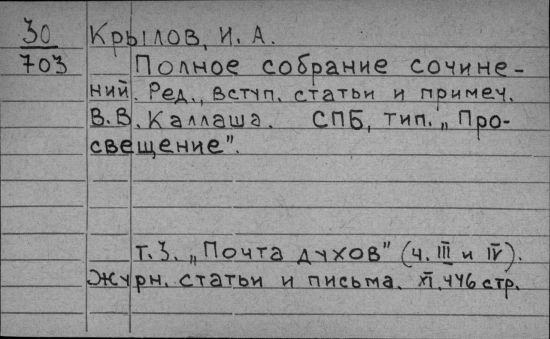 30 Крылов, И. А.
703 Полное собрание сочине-
ний. Ред., вступ. статьи и примеч.
В.В. Каллаша. СПБ, тип. „Про-
свещение".
т. 3. „Почта духов" (ч. III и IV).
Журн. статьи и письма. XI, 446 стр.